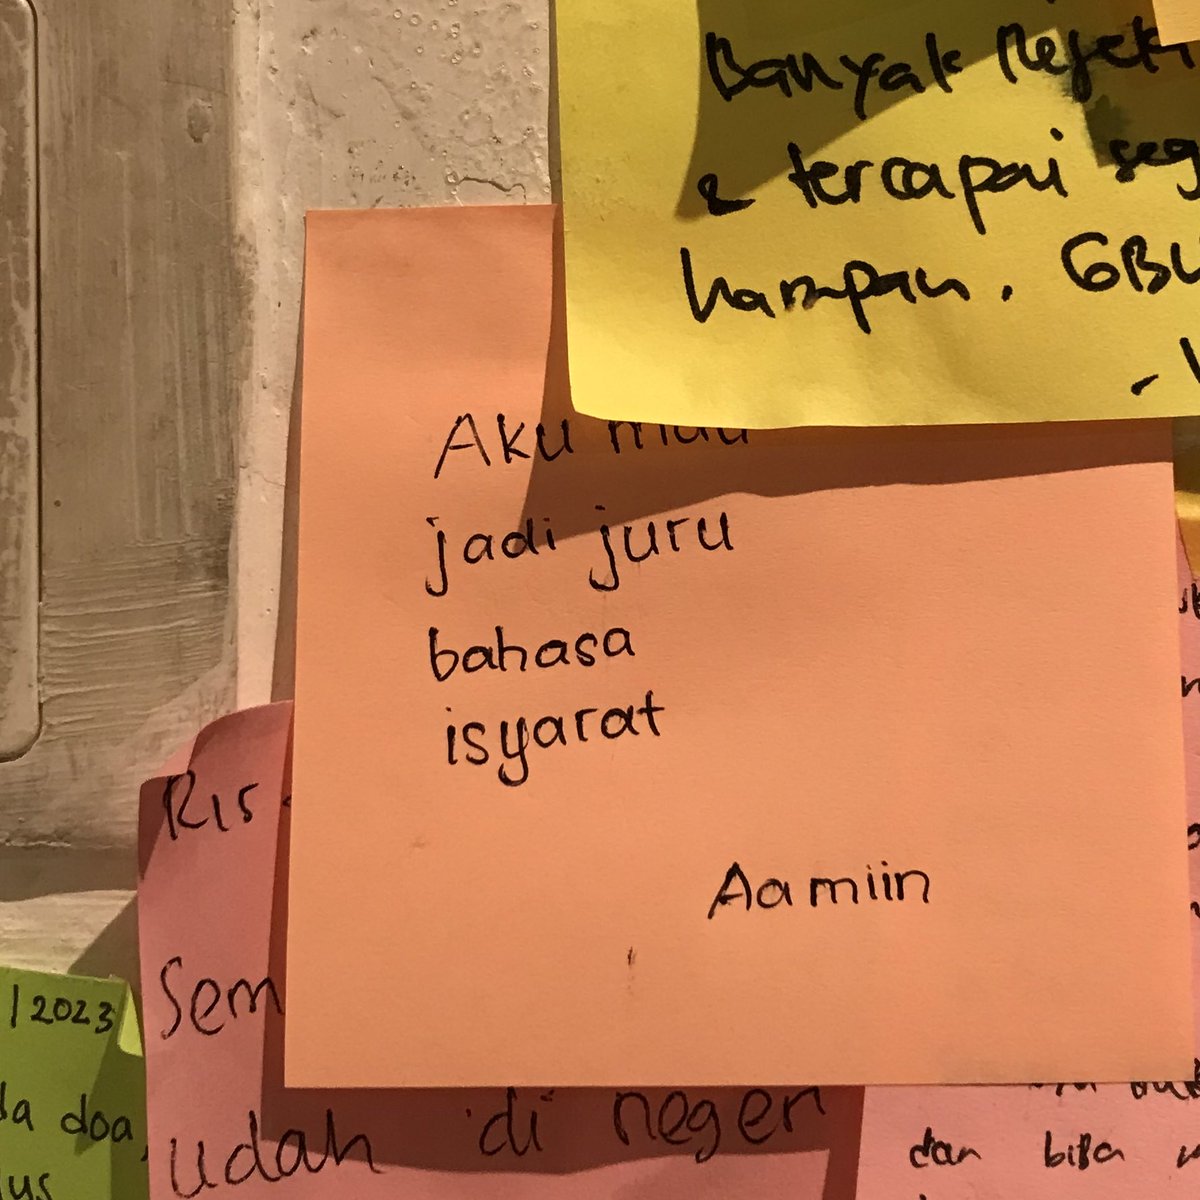 Banyak Rejeki
& tercapai seg
harapan. GBU
Aku mau
jadi juru
bahasa
isyarat
Aamiin
Ris
Sem
udah di neger
/2023
da doa,
dan bisa